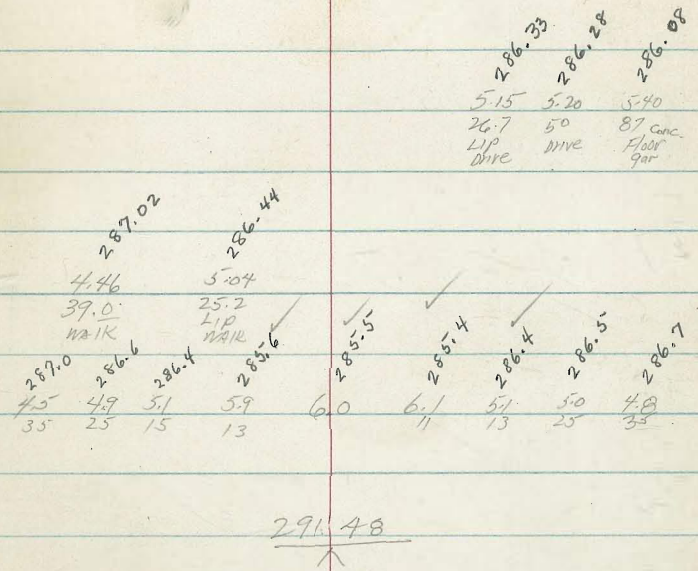 286.33 286.28 286.08
5.15 5.20 5.40
26.7 50 87 Conc.
LIP DRIVE Floor
Drive gar
287.02 286.44
4.46 5.04
39.0 25.2
WALK LIP
WALK
287.0 286.6 286.4 285.6 285.5 285.4 286.4 286.5 286.7
4.5 4.9 5.1 5.9 6.0 6.1 5.1 5.0 4.8
35 25 15 13 11 13 25 35
291.48